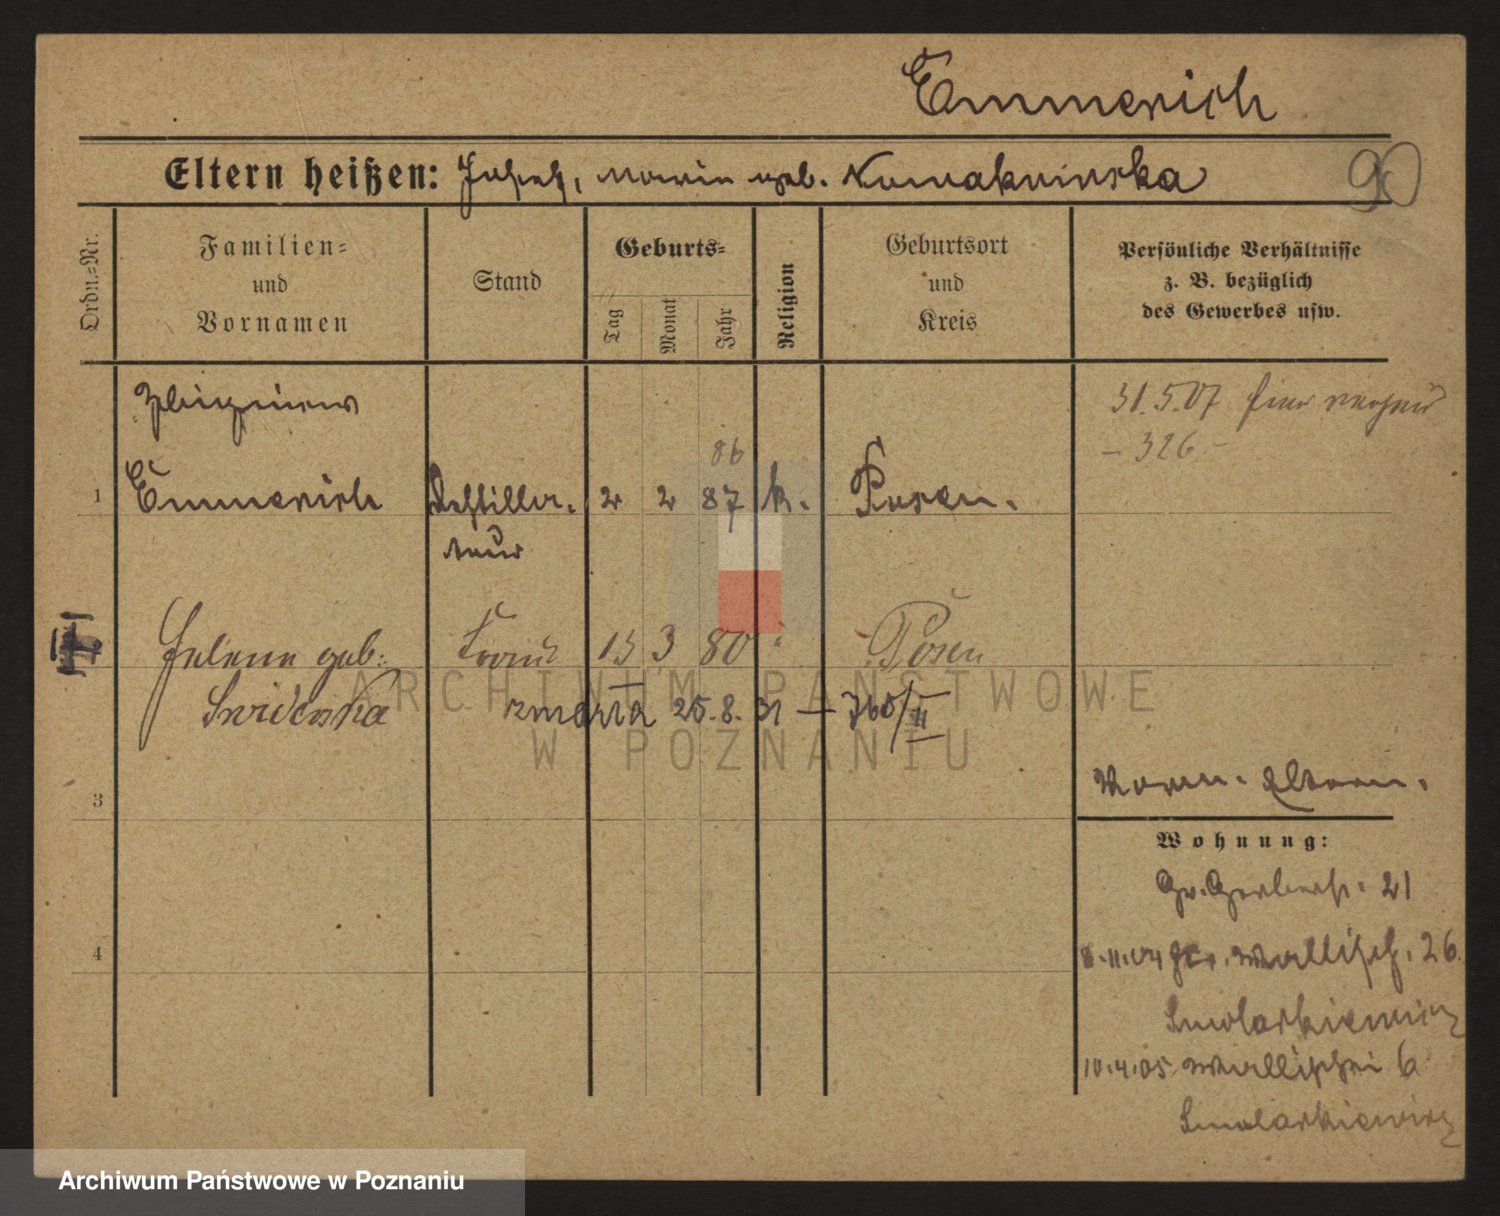 Emmerich
Eltern heißen: Josef, Maria geb. Nowakowska
90
Ordn.=Nr.
Familien=
und
Vornamen
Stand
Geburts=
Tag
Monat
Jahr
Religion
Geburtsort
und
Kreis
Persönliche Verhältnisse
z. B. bezüglich
des Gewerbes usw.
Zbigniew
31.5.07 hier
- 326 -
86
1 Emmerich Destilla- 2 2 87 k. Posen.
teur
Helene geb. 15 3 80 " Posen
zmarła 25.8.31 — 760/II
ARCHIWUM PAŃSTWOWE
W POZNANIU
3
Eltern.
Wohnung:
Gr. Gerberst. 21
4
8.11.04 Wallisch. 26.
Smolarkiewicz
10.4.05 Wallischei 6
Smolarkiewicz
Archiwum Państwowe w Poznaniu